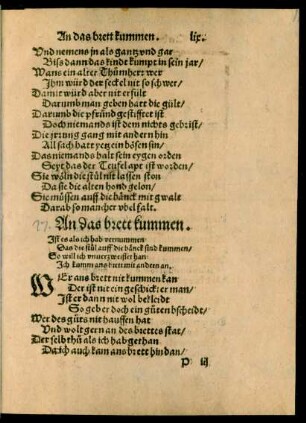 An das brett kummen. lix.
Vnd nemens jn als gantz vnd gar
Biss dann das kindt kumpt in sein jar/
Wans ein alter Thůmherr wer
Jhm würd der seckel nit so schwer/
Damit würd aber nit erfült
Darumb man geben hatt die gült/
Darumb die pfründ gestifftet ist
Doch niemands ist dem nichts gebrist/
Die jerung gang mit andern hin
All sach hatt yetz ein bösen sin/
Das niemands halt sein eygen orden
Seyt das der Teufel apt ist worden/
Sie wöln die stül nit lassen ston
Da sie die alten hond gelon/
Sie müssen auff die bänck mit gwalt
Darab so mancher vbel falt.
An das brett kummen.
Ist es als ich hab vernummen
Das die stül auff die bänck sind kummen/
So will ich vnuerzweiflet han
Ich kumm ans brett mit andern an.
WEr ans brett nit kummen kan
Der ist nit ein geschickter man/
Ist er dann nit wol bekleidt
So geb er doch ein gůten bscheidt/
Wer des gůts nit hauffen hat
Vnd wolt gern an des brettes stat/
Der selb thů als ich hab gethan
Da ich auch kam ans brett hindan/
p iij